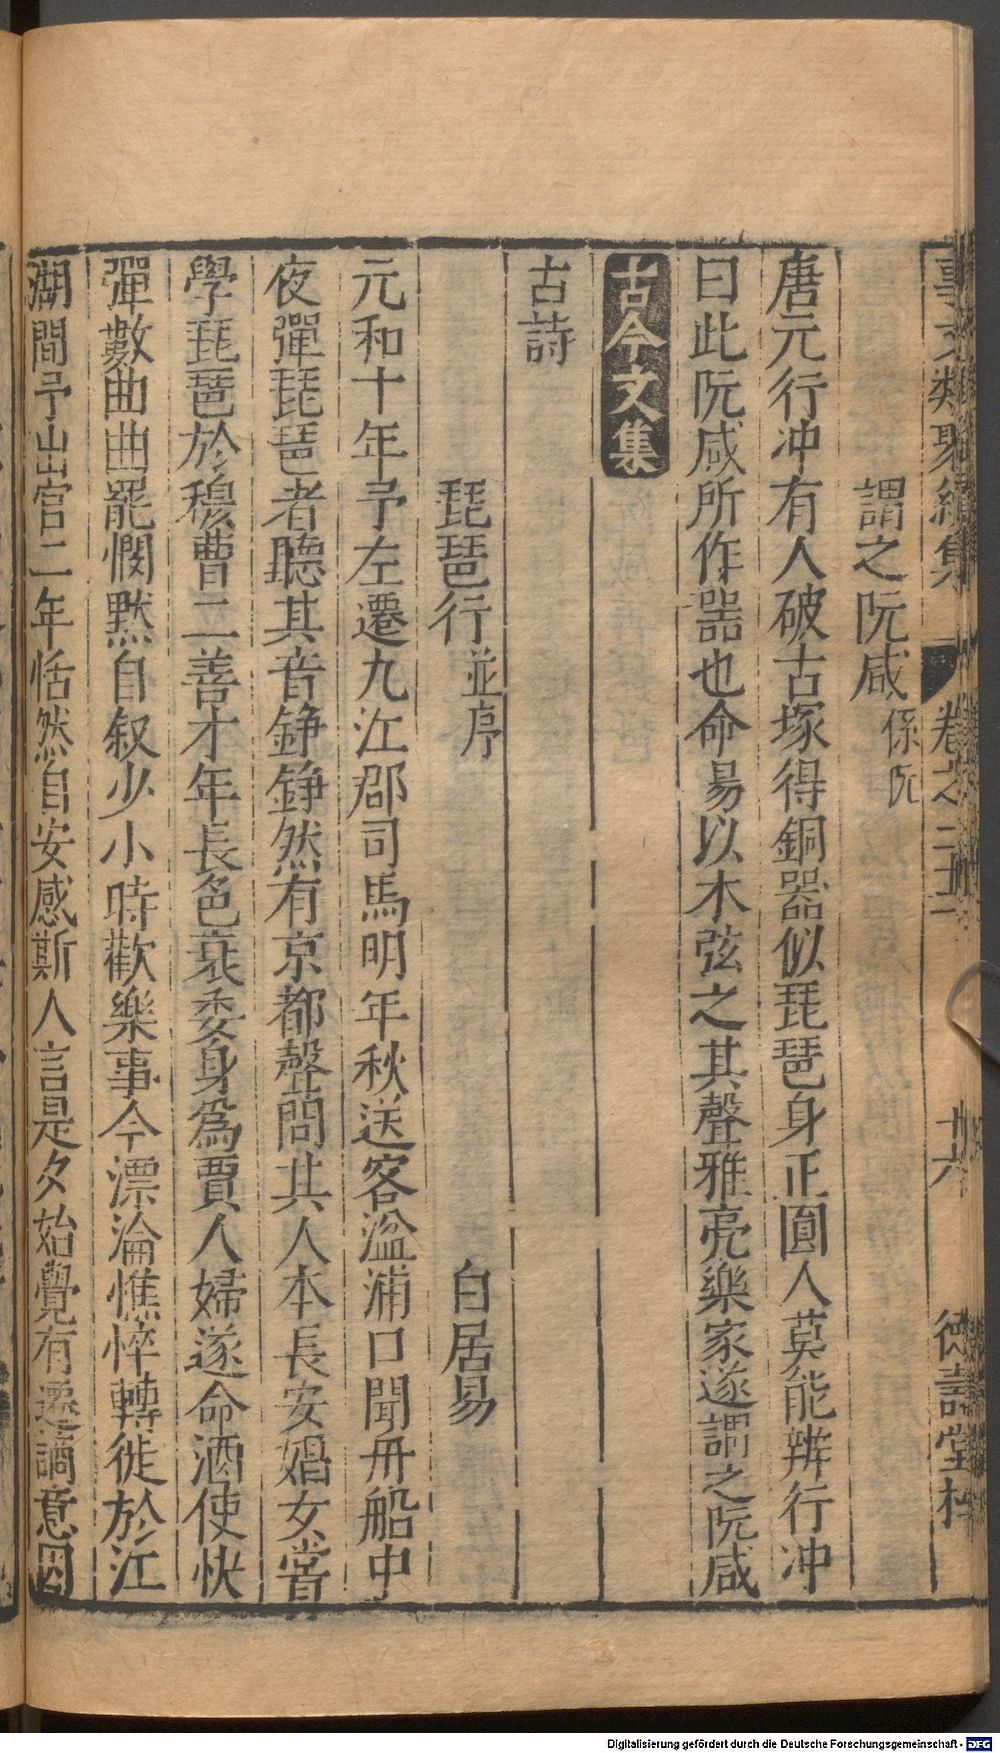 事文類聚續集 卷之二十二 十六 德壽堂梓
謂之阮咸係阮
唐元行冲有人破古塚得銅器似琵琶身正圓人莫能辨行冲
曰此阮咸所作噐也命昜以木弦之其聲雅亮樂家遂謂之阮咸
古今文集
古詩
琵琶行並序 白居易
元和十年予左遷九江郡司馬明年秋送客湓浦口聞舟船中
夜彈琵琶者聽其音錚錚然有京都聲問其人本長安娼女嘗
學琵琶於穆曹二善才年長色衰委身爲賈人婦遂命酒使快
彈數曲曲罷憫默自叙少小時歡樂事今漂淪憔悴轉徙於江
湖間予出官二年恬然自安感斯人言是夕始覺有遷謫意因
Digitalisierung gefördert durch die Deutsche Forschungsgemeinschaft - DFG